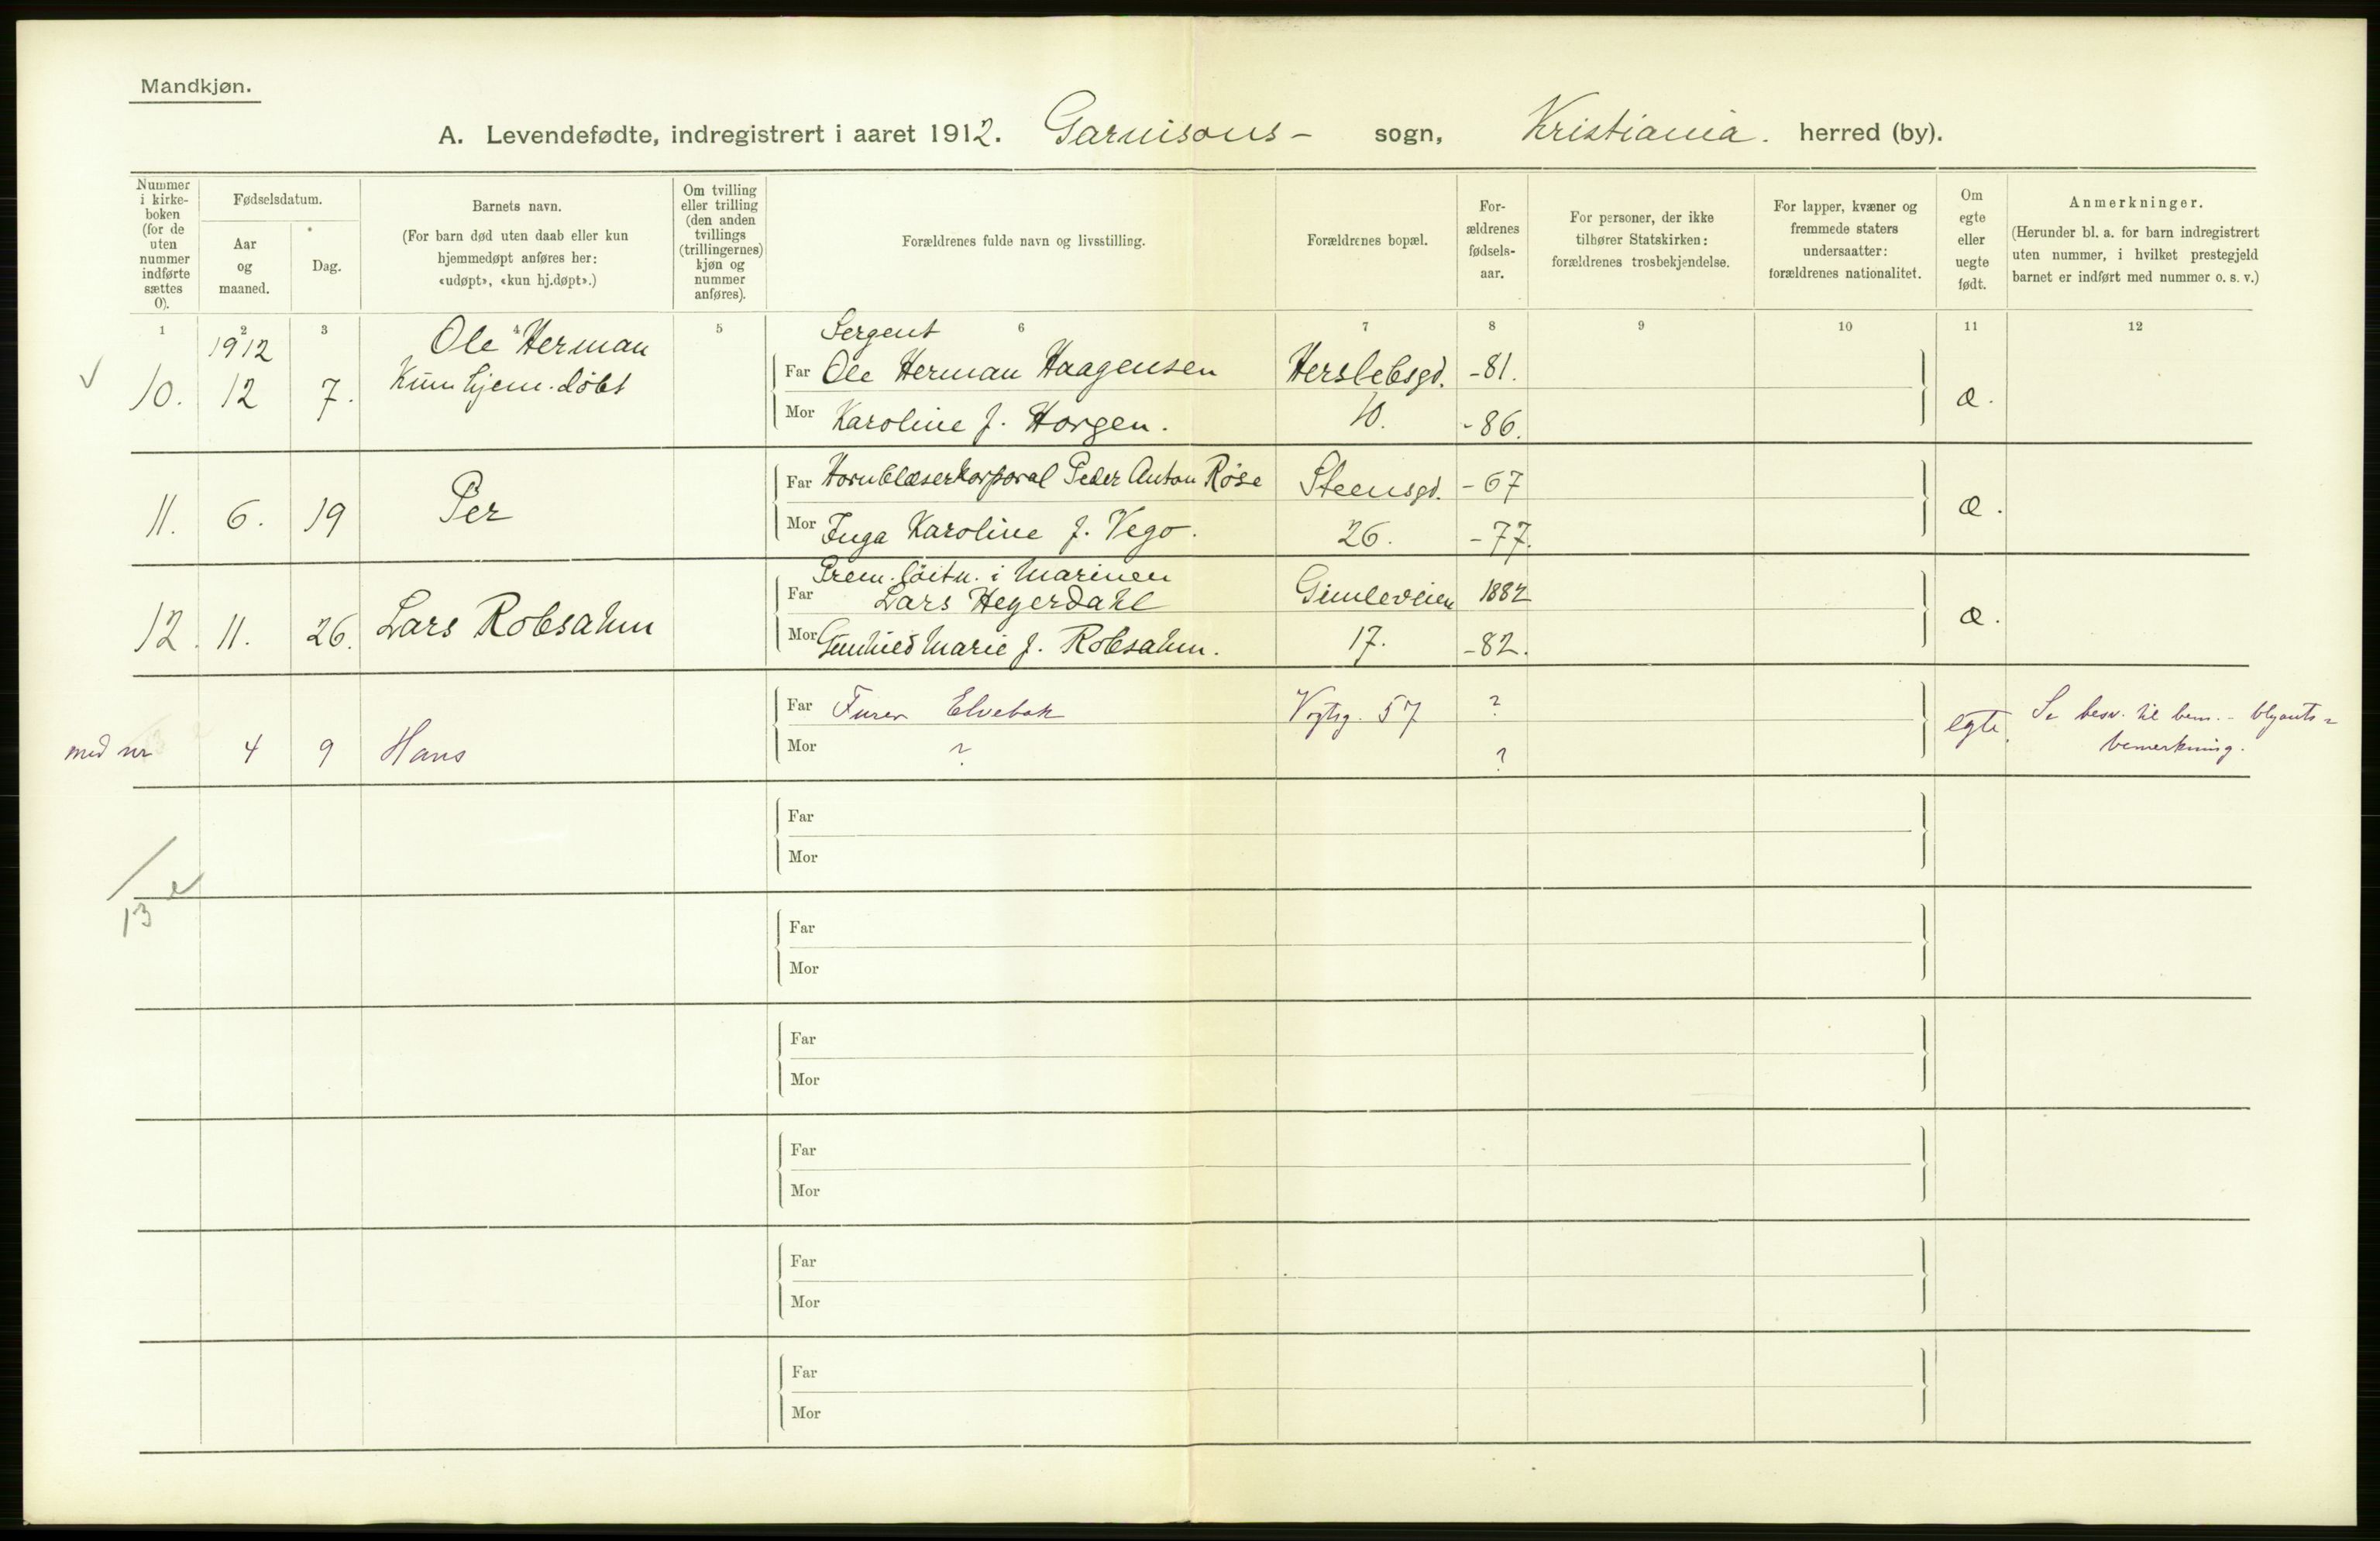 Mandkjøn.
A. Levendefødte, indregistrert i aaret 1912. Garnisons- sogn, Kristiania. herred (by).
Nummer i kirke-boken (for de uten nummer indførte sættes 0).
Fødselsdatum.
Aar og maaned.
Dag.
Barnets navn.
(For barn død uten daab eller kun hjemmedøpt anføres her: «udøpt», «kun hj.døpt».)
Om tvilling eller trilling (den anden tvillings (trillingernes) kjøn og nummer anføres).
Forældrenes fulde navn og livsstilling.
Forældrenes bopæl.
For-ældrenes fødsels-aar.
For personer, der ikke tilhører Statskirken: forældrenes trosbekjendelse.
For lapper, kvæner og fremmede staters undersaatter: forældrenes nationalitet.
Om egte eller uegte født.
Anmerkninger.
(Herunder bl. a. for barn indregistrert uten nummer, i hvilket prestegjeld barnet er indført med nummer o. s. v.)
1 2 3 4 5 6 7 8 9 10 11 12
1912 Ole Herman Sergent
10. 12 7. Kun hjem. döbt Far Ole Herman Haagensen Herslebsgd. -81. æ.
Mor Karoline f. Horgen. 10. -86.
11. 6. 19 Per Far Hornblæserkorporal Peder Anton Røse Steensgd. -67 æ.
Mor Inga Karoline f. Vego. 26. -77.
Prem. löitn. i Marinen
12. 11. 26. Lars Robsahm Far Lars Hegerdahl Gimleveien 1882 æ.
Mor Marie f. Robsahm. 17. -82.
med nr 4 9 Hans Far Furer Elvebak Vogtsg. 57 ? egte. Se besv. til bem. - blyants-
Mor ? ? bemerkning.
Far
Mor
13
Far
Mor
Far
Mor
Far
Mor
Far
Mor
Far
Mor